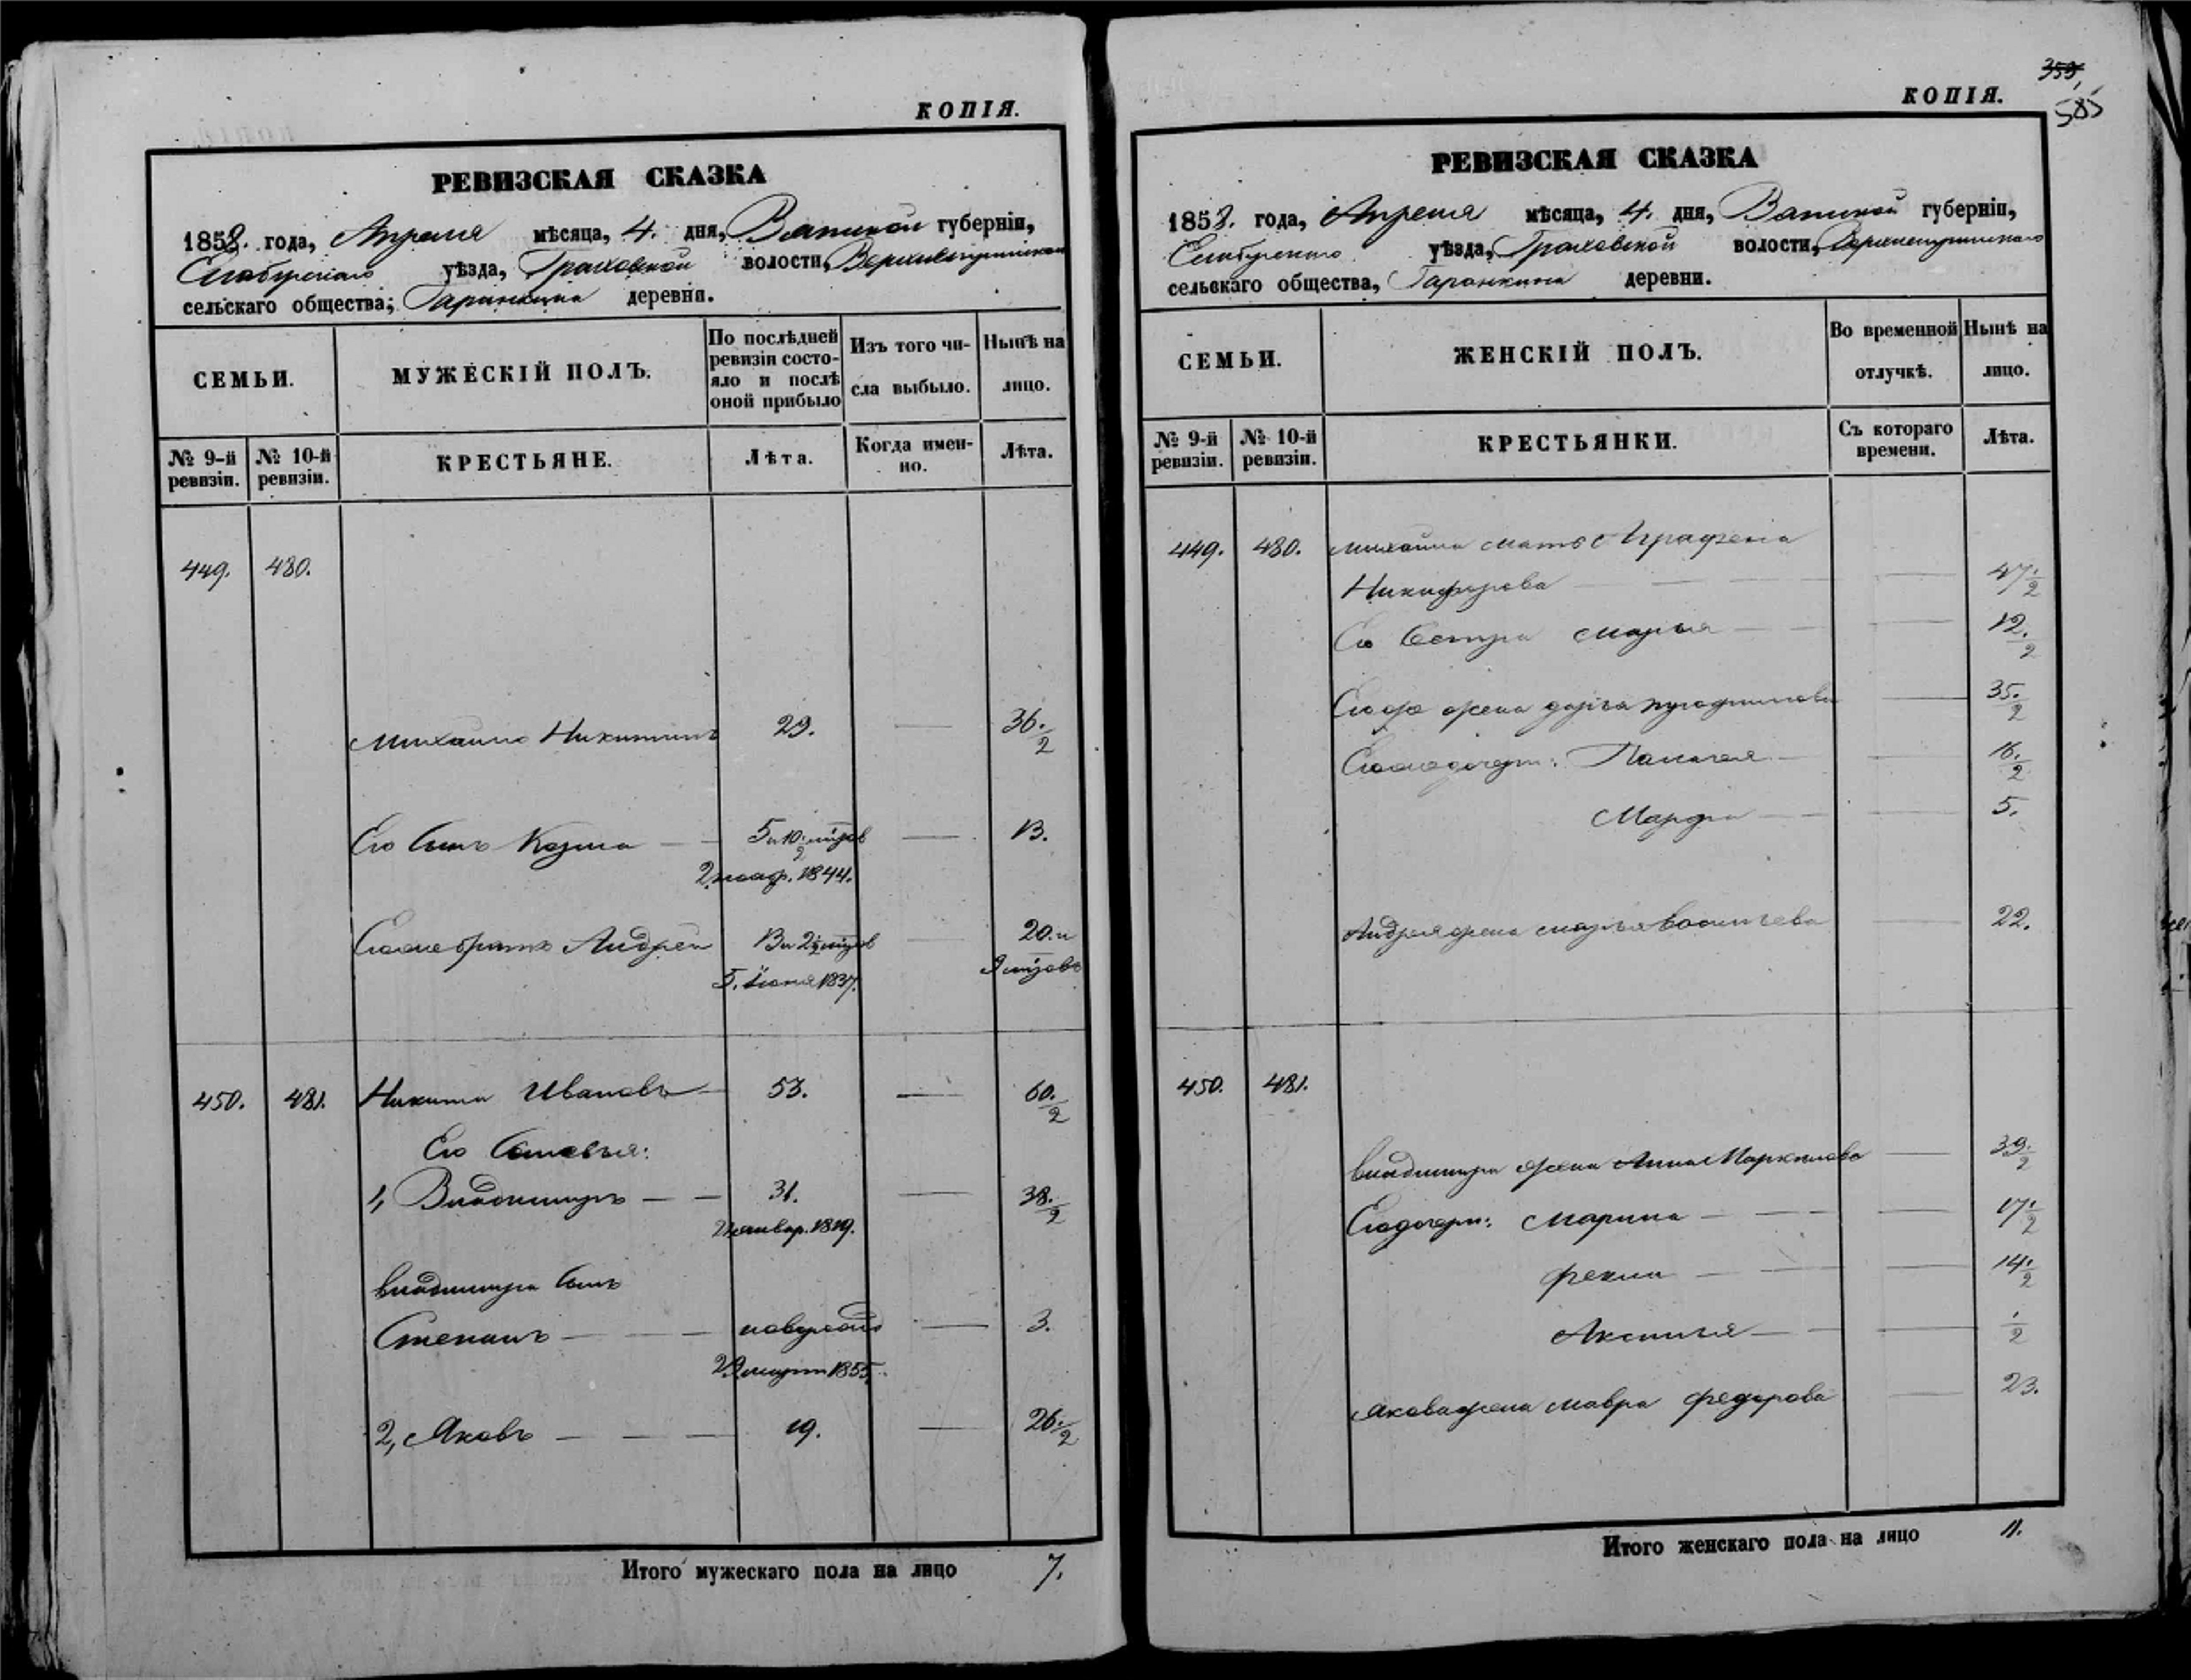 КОПІЯ.
РЕВИЗСКАЯ СКАЗКА
1858. года, Апреля мѣсяца, 4. дня, Вятской губерніи,
Елабужскаго уѣзда, Граховской волости,
сельскаго общества; Гаранкина деревни.
СЕМЬИ.
МУЖЕСКІЙ ПОЛЪ.
По послѣдней
ревизіи состо-
яло и послѣ
оной прибыло
Изъ того чи-
сла выбыло.
Нынѣ на
лицо.
№ 9-й
ревизіи.
№ 10-й
ревизіи.
КРЕСТЬЯНЕ.
Лѣта.
Когда имен-
но.
Лѣта.
449. 480.
Михайло Никитинъ 29. — 36. 1/2
Его Сынъ Козма — 5 и 10 1/2 мѣсяцов — 13.
2 нояб. 1844.
Его же братъ Андрей 13 и 2 1/2 мѣсяцов — 20. и
5. Июня 1837. 9 мѣсяцовъ
450. 481. Никита Ивановъ — 53. — 60. 1/2
Его Сыновья:
1, Владимиръ — — 31. — 38. 1/2
январ. 1819.
Владимира Сынъ
Степанъ — — новорожд — 3.
29 марта 1855.
2, Яковъ — — — 19. — 26. 1/2
Итого мужескаго пола на лицо 7.
353,
585
КОПІЯ.
РЕВИЗСКАЯ СКАЗКА
1858. года, Апреля мѣсяца, 4. дня, Вятской губерніи,
Елабужскаго уѣзда, Граховской волости,
сельскаго общества, Гаранкина деревни.
СЕМЬИ.
ЖЕНСКІЙ ПОЛЪ.
Во временной
отлучкѣ.
Нынѣ на
лицо.
№ 9-й
ревизіи.
№ 10-й
ревизіи.
КРЕСТЬЯНКИ.
Съ котораго
времени.
Лѣта.
449. 480. Михайла мать Аграфена
Никифорова — — — — 47. 1/2
Его Сестра Марья — — 12. 1/2
Его же жена Дарья — 35. 1/2
Его же дочери: Палагея — — 16. 1/2
Марфа — — — 5.
Андрея жена Марья Васильева — 22.
450. 481.
Владимира жена Анна — 39. 1/2
Его дочери: Марина — — — — 17. 1/2
Фекла — — — 14. 1/2
Аксинья — — — 1/2
Якова жена Мавра Федорова — 23.
Итого женскаго пола на лицо 11.